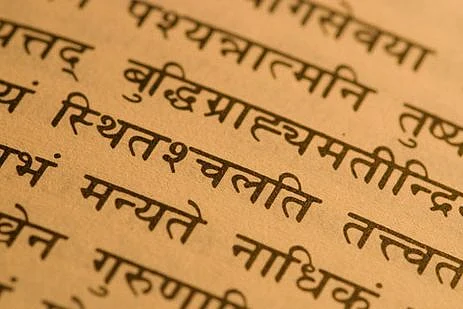 गसेवया
पश्यन्नात्मनि तुष्य
यत्तद् बुद्धिग्राह्यमतीन्द्रि
यं स्थितश्चलति तत्त्वत
भं मन्यते नाधिकं
खेन गुरुणापि